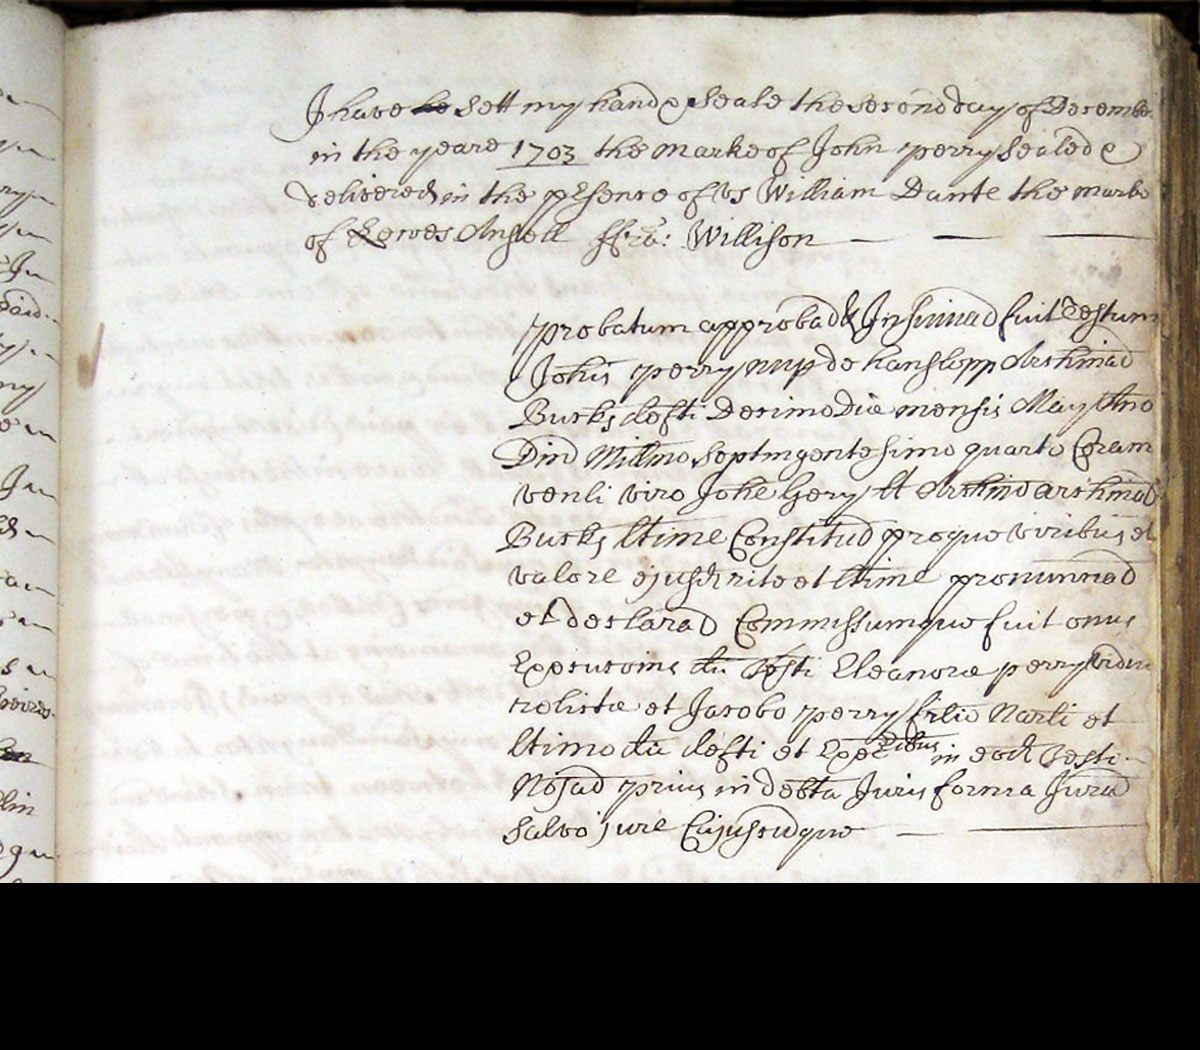 I have be sett my hand & seale the second day of Decembe
in the yeare 1703 the marke of John perry sealed &
delivered in the psence of vs William Dante the marke
of Lewes Ansell ffra: Willison
probatum approbad & Insinuad fuit Testum
Johis perry nup de hanslopp Archinad
Bucks defti decimo die mensis May Ano
Dni Millmo Septingentesimo quarto Coram
venli viro Johe Gery Archino Archinad
Bucks ltime Constitud proque viribus et
valore ejusd rite et ltime pronunciad
et declarad Commissumque fuit onus
Executoms dti Testi Eleanoræ perry vidue
relictæ et Jacobo perry filio Narli et
ltimo dti defti et Exec ribus in eod Testi
Noiad prius in debta Juris forma Jurad
Salvo jure Cujuscuque